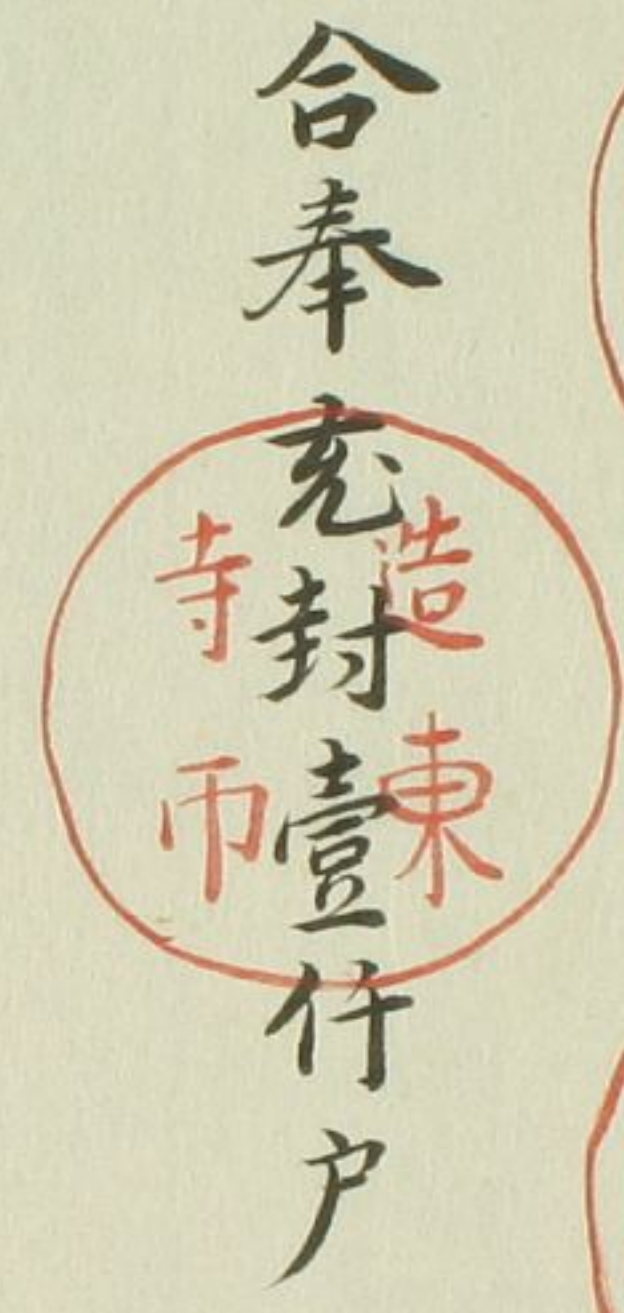 合奉充封壹仟戸
造東
寺印